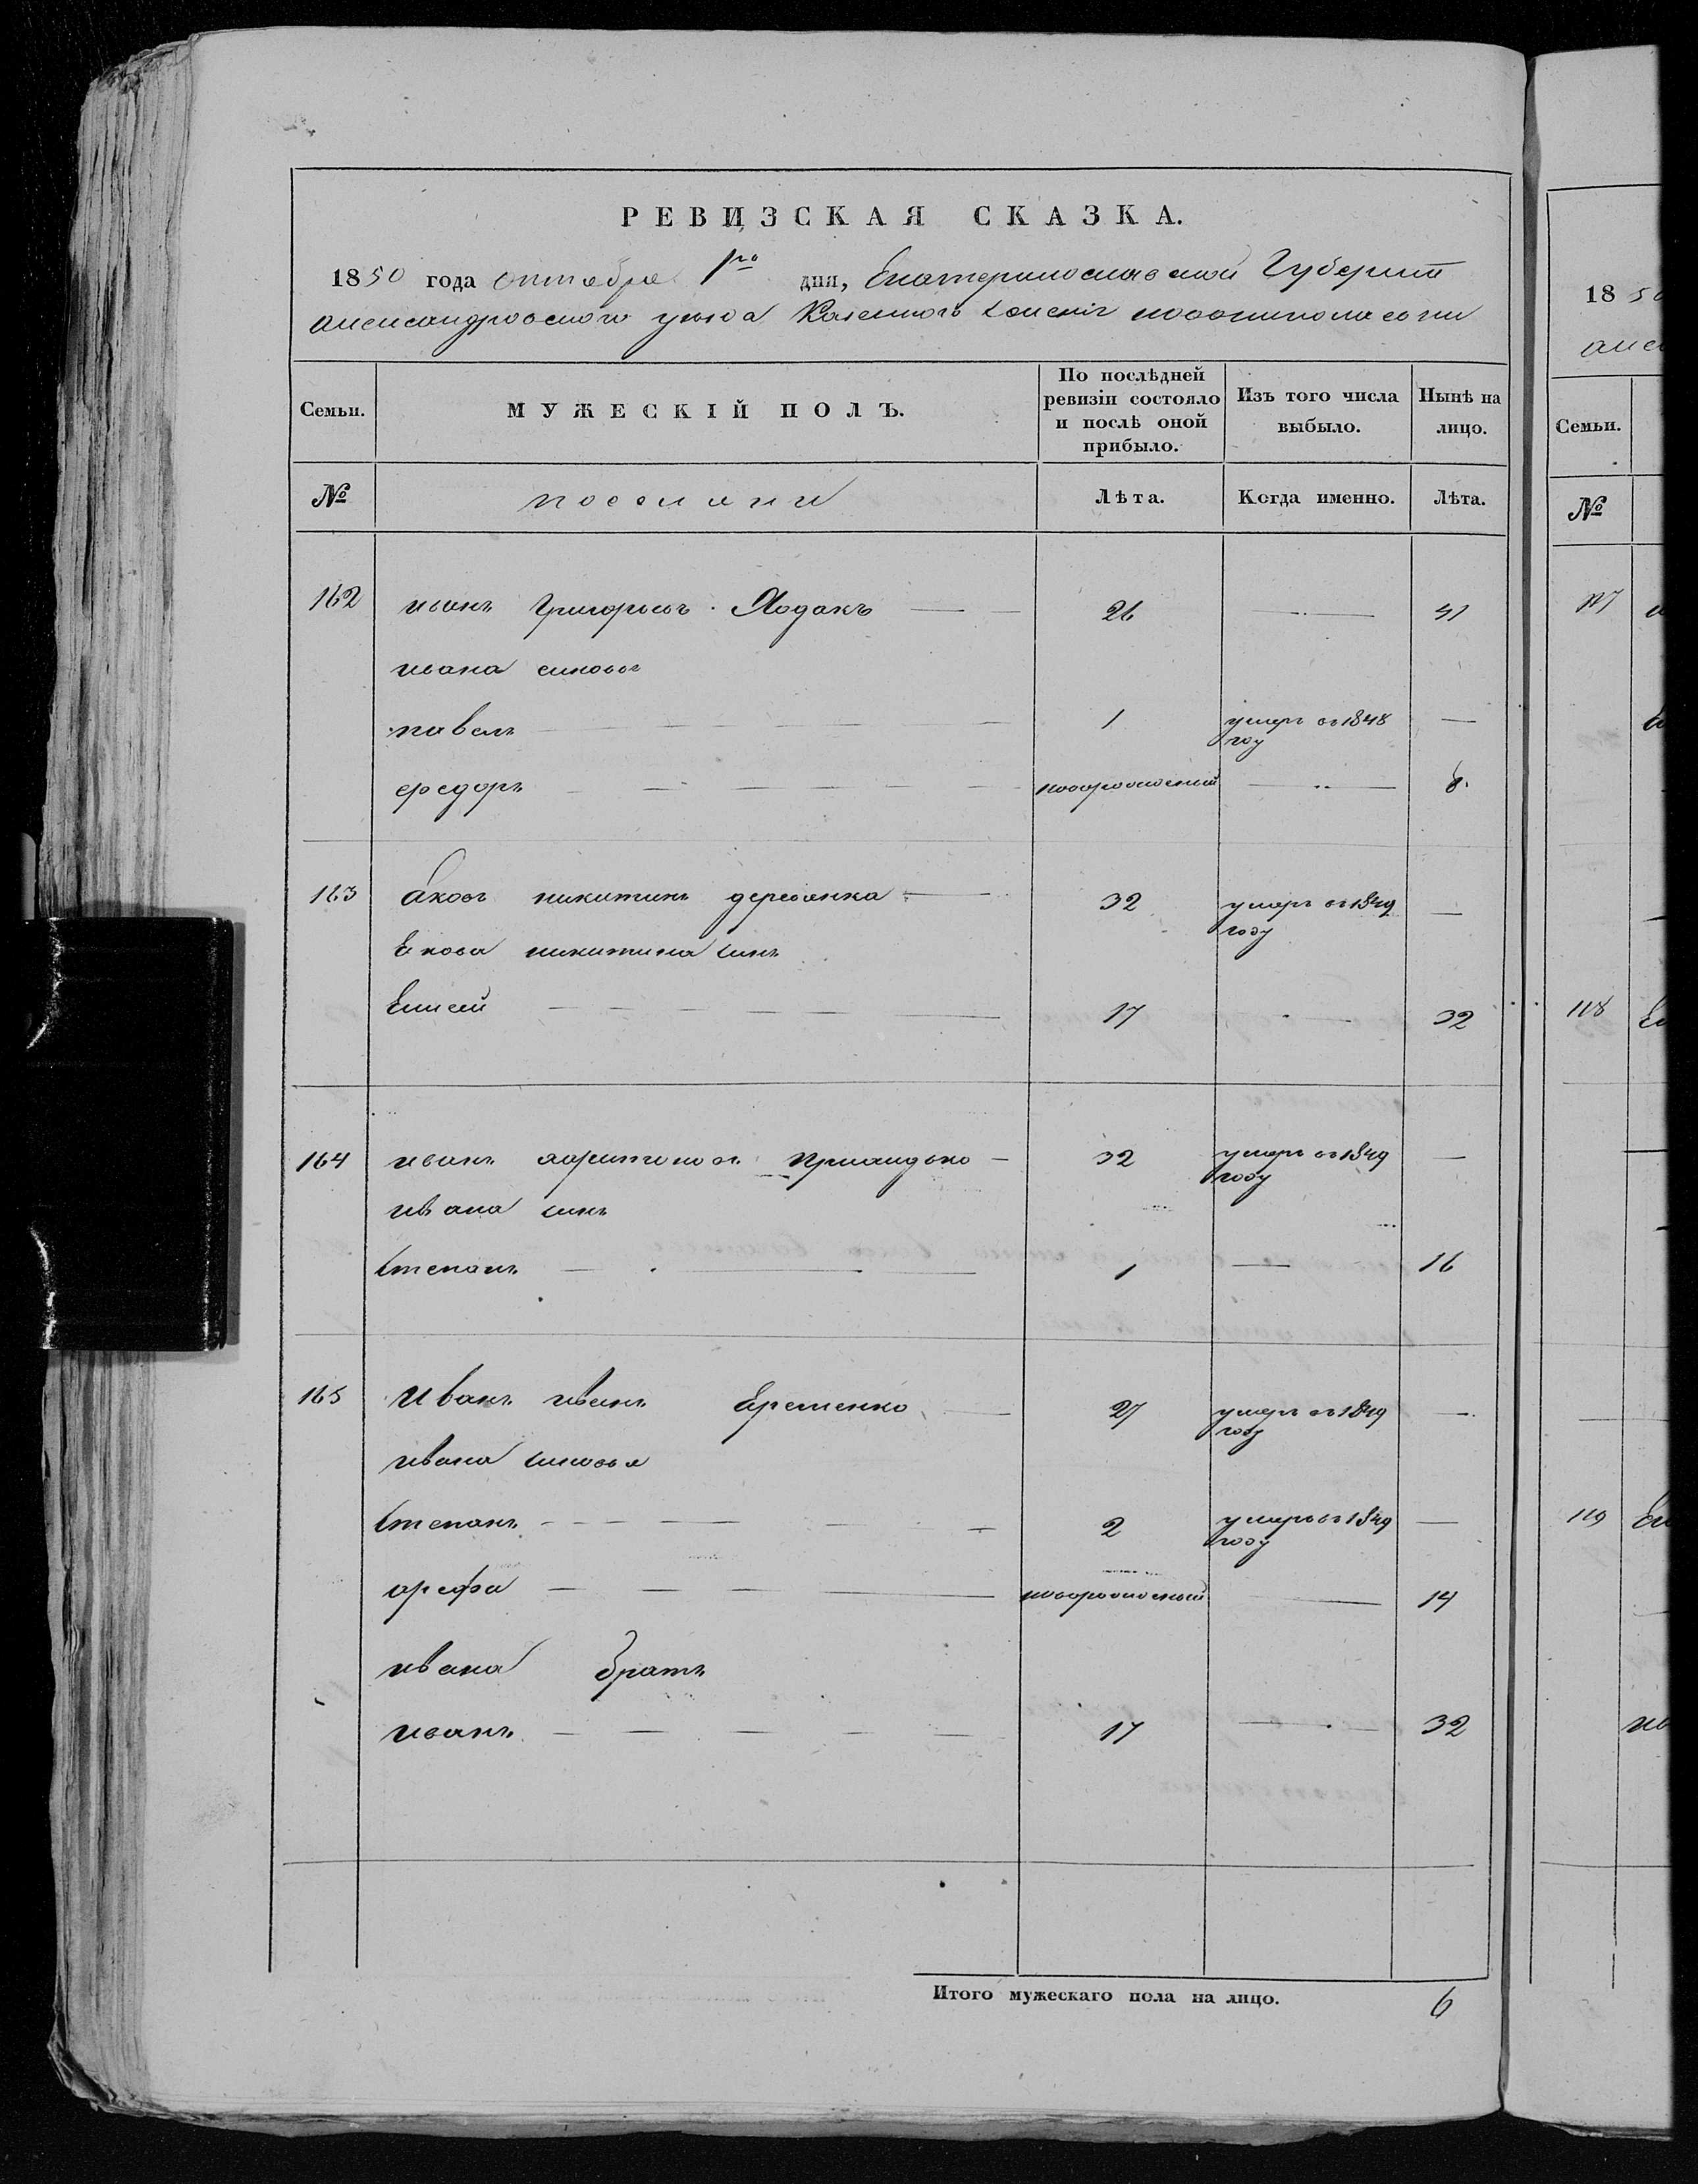 РЕВИЗСКАЯ СКАЗКА.
1850 года октября 1го дня, Екатеринославской Губернии
александровского уезда Казенного
Семьи. МУЖЕСКІЙ ПОЛЪ. По послѣдней ревизіи состояло и послѣ оной прибыло. Изъ того числа выбыло. Нынѣ на лицо.
№ поселяни Лѣта. Когда именно. Лѣта.
162 иванъ Григорьевъ Ходакъ 26 41
ивана синовья
павелъ 1 умеръ въ 1848 году
федоръ новорожденный 8.
163 Аковъ никитинъ деревянка 32 умеръ въ 1849 году
Екова никитина синъ
Елисей 17 32
164 иванъ харитоновъ 32 умеръ въ 1849 году
ивана синъ
Степанъ 1 16
165 Иванъ иванъ Еременко 27 умеръ въ 1849 году
ивана синовья
Степанъ 2 умеръ въ 1849 году
арефа новорожденный 14
ивана братъ
иванъ 17 32
Итого мужескаго пола на лицо. 6
1850
алек
Семьи.
№
117
118 Ел
119
ив